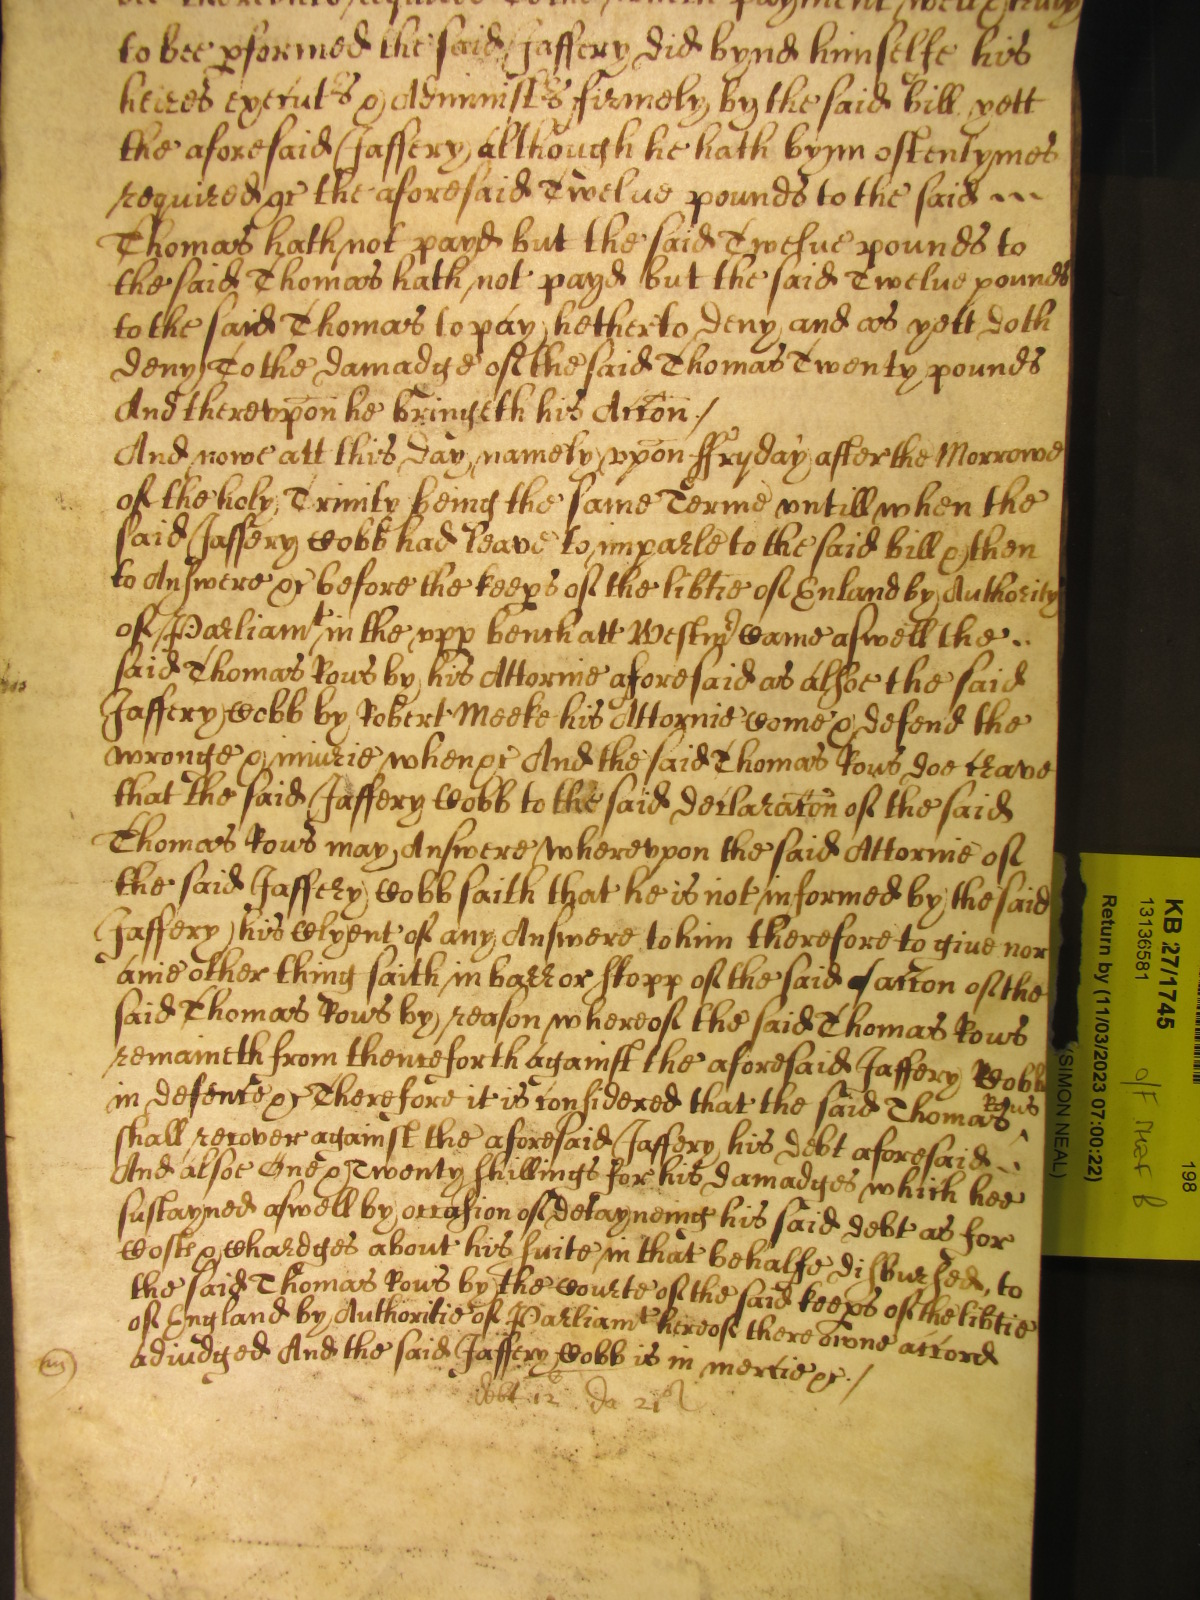 to bee pformed the said Jaffery did bynd himselfe his
heires execut^rs & Administ^rs firmely by the said bill yett
the aforesaid Jaffery although he hath bynn oftentymes
required &c the aforesaid Twelve pounds to the said ---
Thomas hath not payd but the said Twelve pounds to
the said Thomas hath not payd but the said Twelve pounds
to the said Thomas to pay hetherto deny and as yett doth
deny To the damadge of the said Thomas Twenty pounds
And therevpon he bringeth his Accon /
And nowe att this day namely vpon ffryday after the Morrowe
of the holy Trinity being the same Terme vntill when the
said Jaffery Cobb had leave to imparle to the said bill & then
to Answere &c before the keeps of the libtie of Enland by Authority
of Parliam^t in the vpp bench att Westm^r Came aswell the ..
said Thomas Rows by his Attornie aforesaid as alsoe the said
Jaffery Cobb by Robert Meeke his Attornie Come & defend the
wronge & iniurie when &c And the said Thomas Rows doe crave
that the said Jaffery Cobb to the said declaracon of the said
Thomas Rows may Answere wherevpon the said Attornie of
the said Jaffery Cobb saith that he is not informed by the said
Jaffery his Clyent of any Answere to him therefore to give nor
anie other thing saith in barr or stopp of the said accon of the
said Thomas Rows by reason whereof the said Thomas Rows
remaineth from thenceforth against the aforesaid Jaffery Cobb
in defence &c Therefore it is considered that the said Thomas ^Rows
shall recover against the aforesaid Jaffery his debt aforesaid --
And alsoe One & Twenty shillings for his damadges which hee
sustayned aswell by occasion of detayneing his said debt as for
Costs & Chardges about his suite in that behalfe disbursed, to
the said Thomas Rows by the Courte of the said keeps of the libtie
of England by Authoritie of Parliam^t hereof there owne accord
adiudged And the said Jaffery Cobb is in mercie &c /
debt 12 Da 21^s
KB 27/1745
13136581
Return by (11/03/2023 07:00:22)
(SIMON NEAL)
198